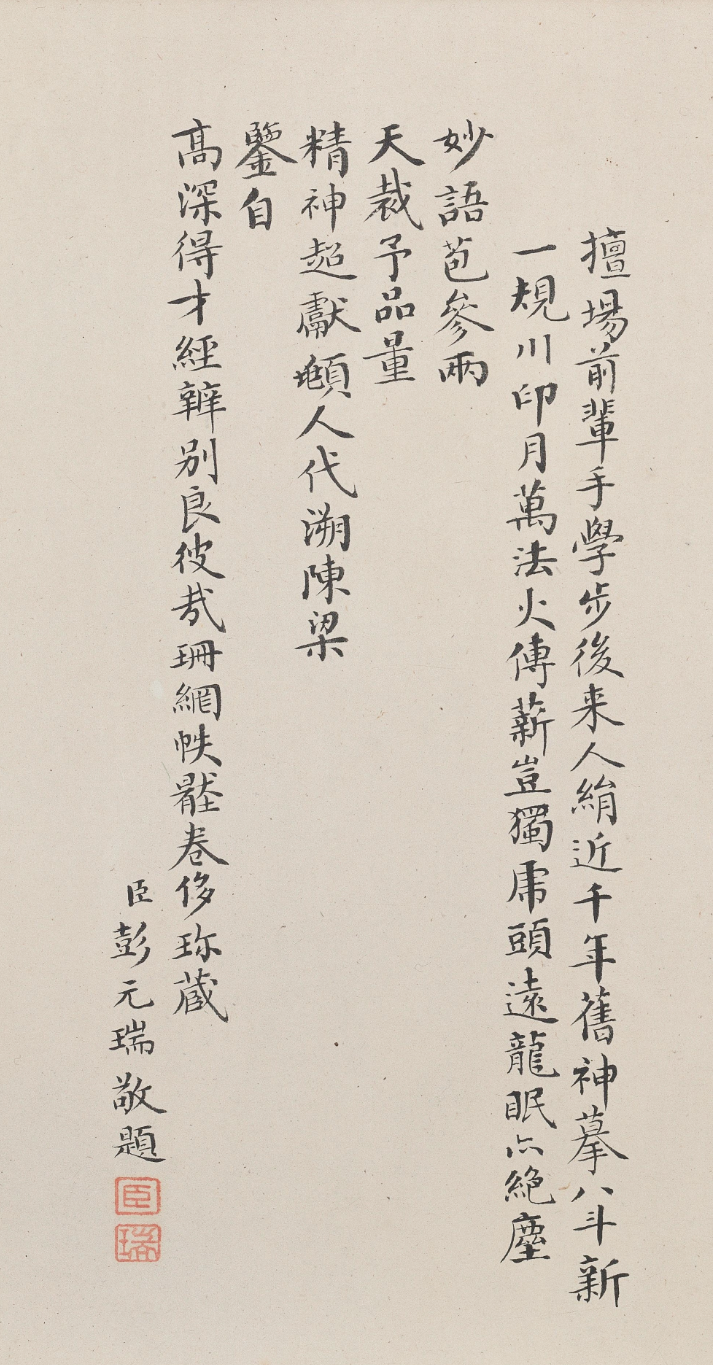 擅場前輩手學步後来人絹近千年舊神摹八斗新
一規川印月萬法火傳薪豈獨虎頭遠龍眠亦絕塵
妙語苞參兩
天裁予品量
精神超獻頫人代溯陳梁
鑒自
高深得才經辨別良彼哉珊網帙卷侈珍藏
臣彭元瑞敬題
臣
瑞